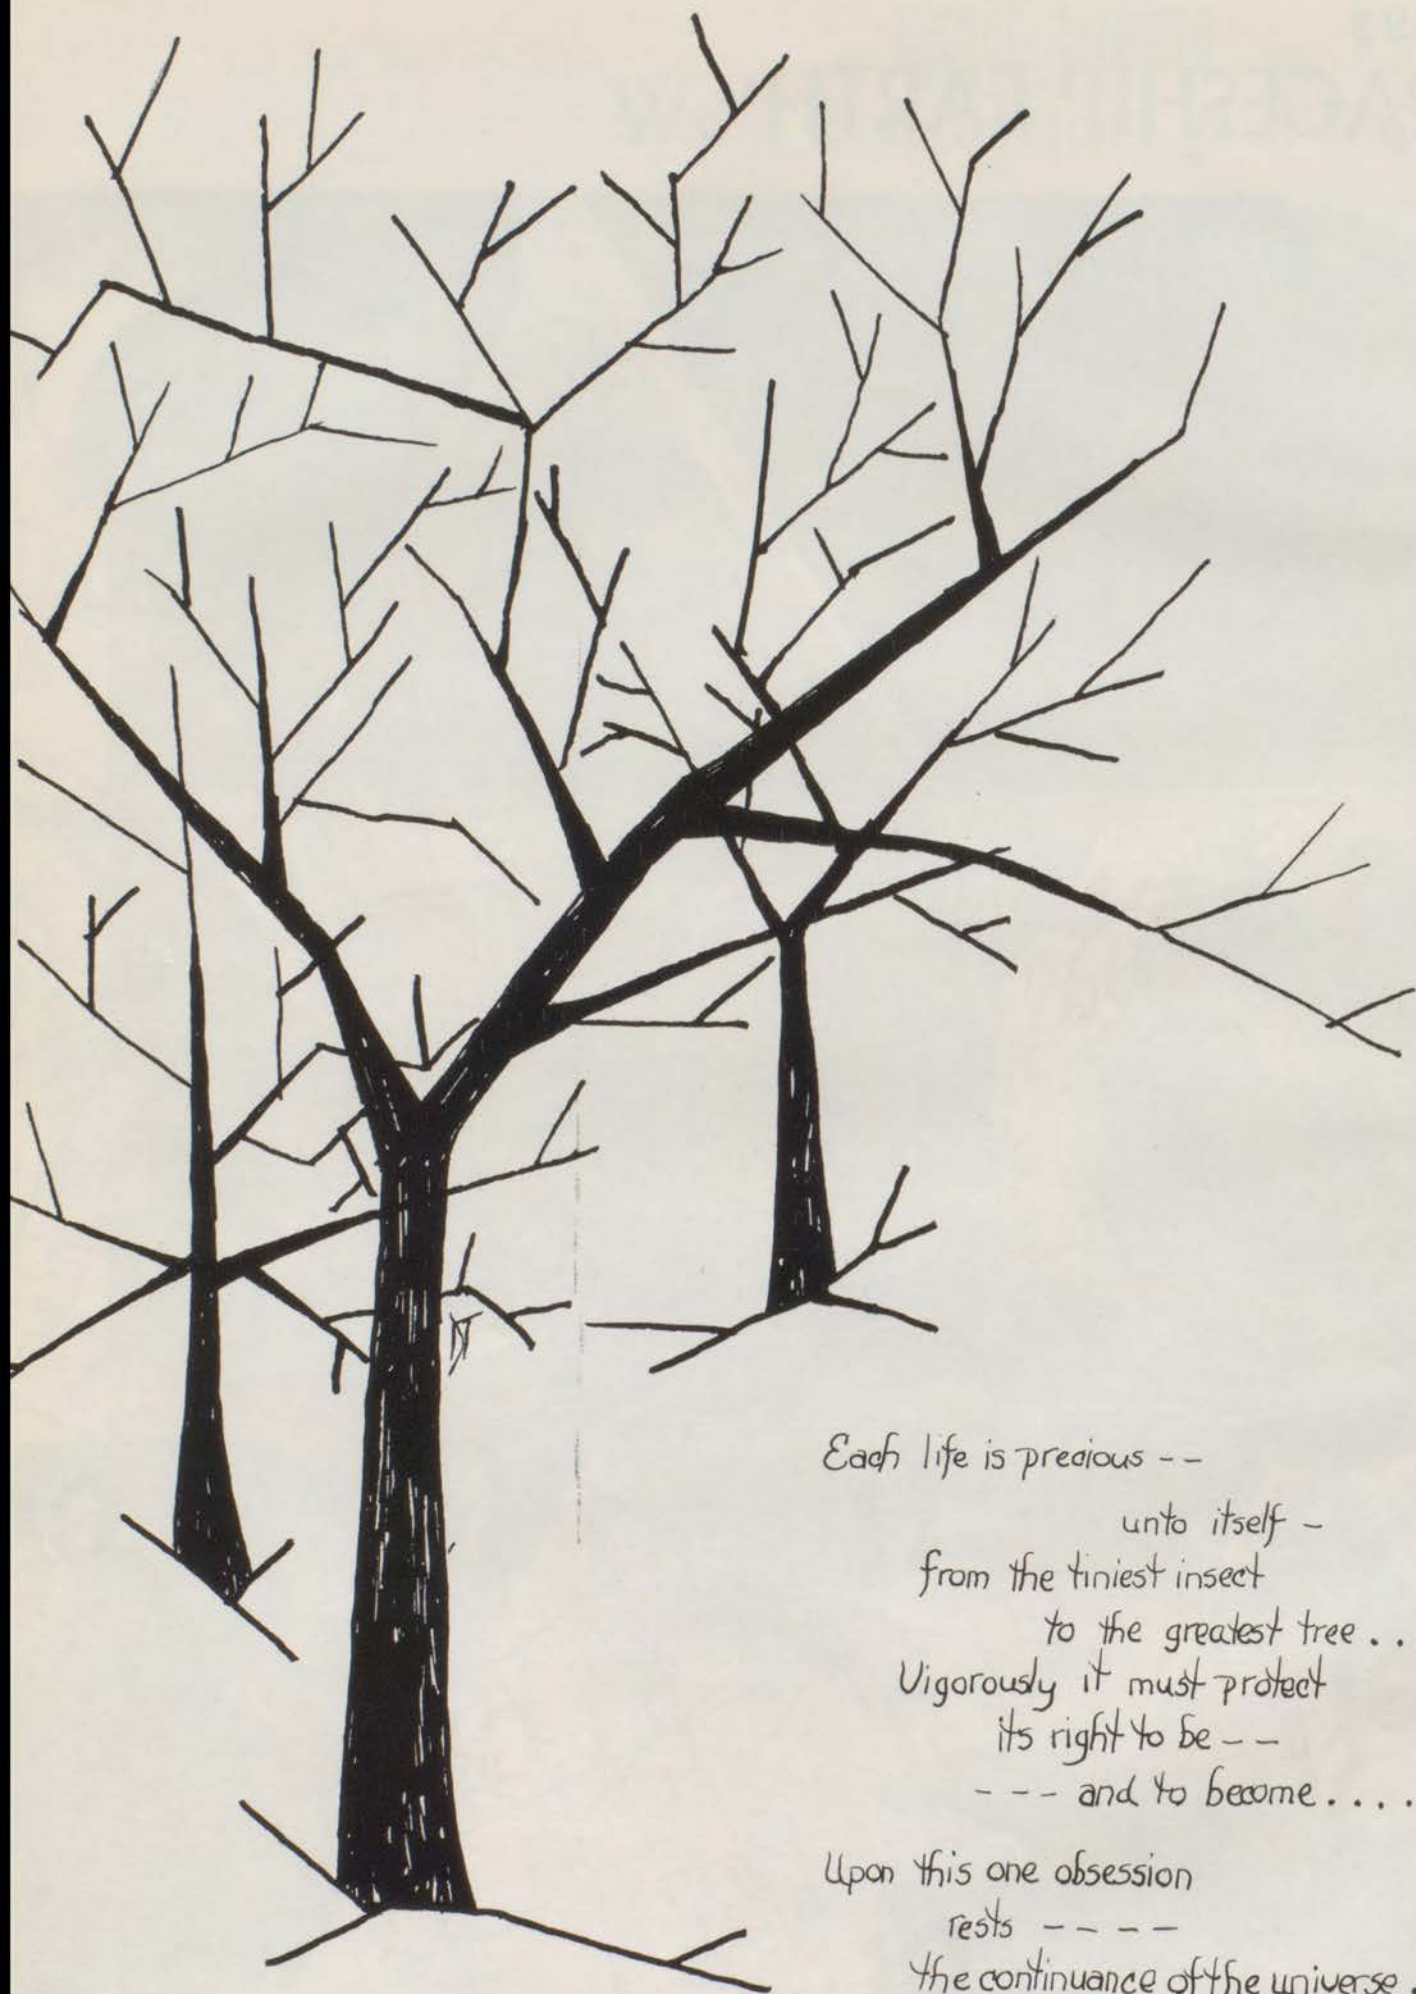 Each life is precious --
unto itself -
from the tiniest insect
to the greatest tree . .
Vigorously it must protect
its right to be --
--- and to become . . . .
Upon this one obsession
rests ----
the continuance of the universe .